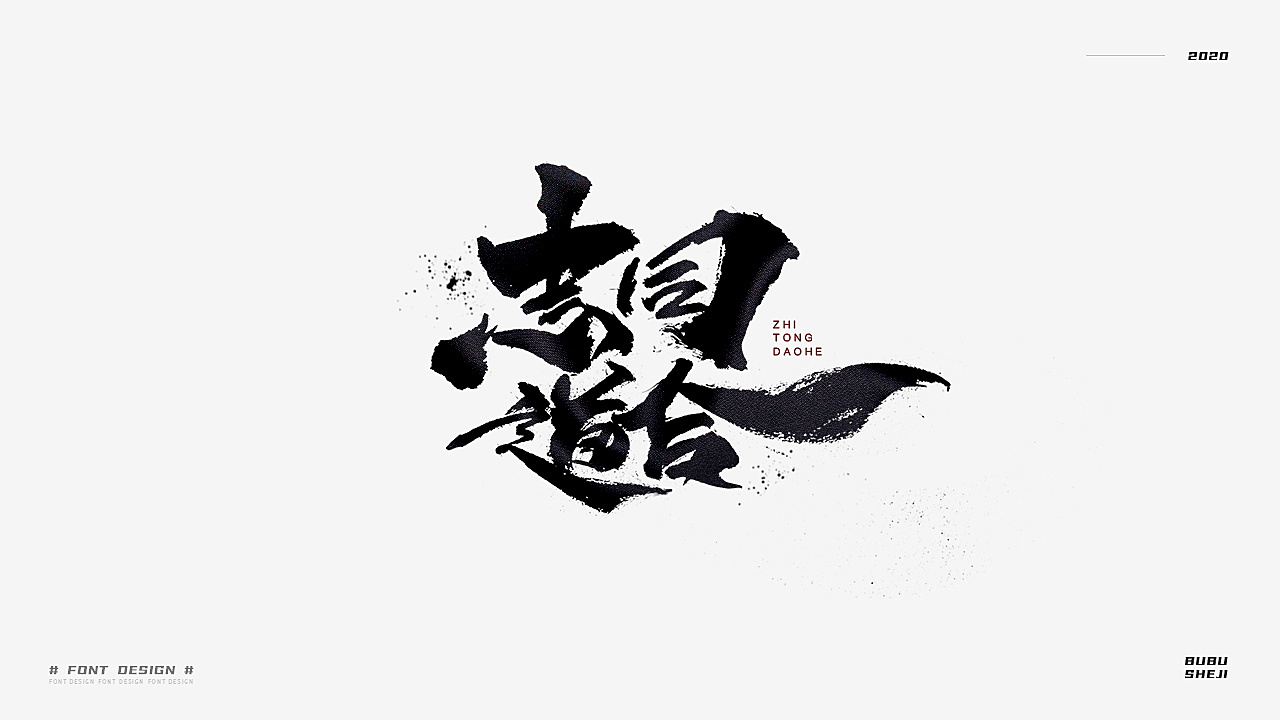 2020
志同
道合
ZHI
TONG
DAOHE
# FONT DESIGN #
FONT DESIGN FONT DESIGN FONT DESIGN
BUBU
SHEJI